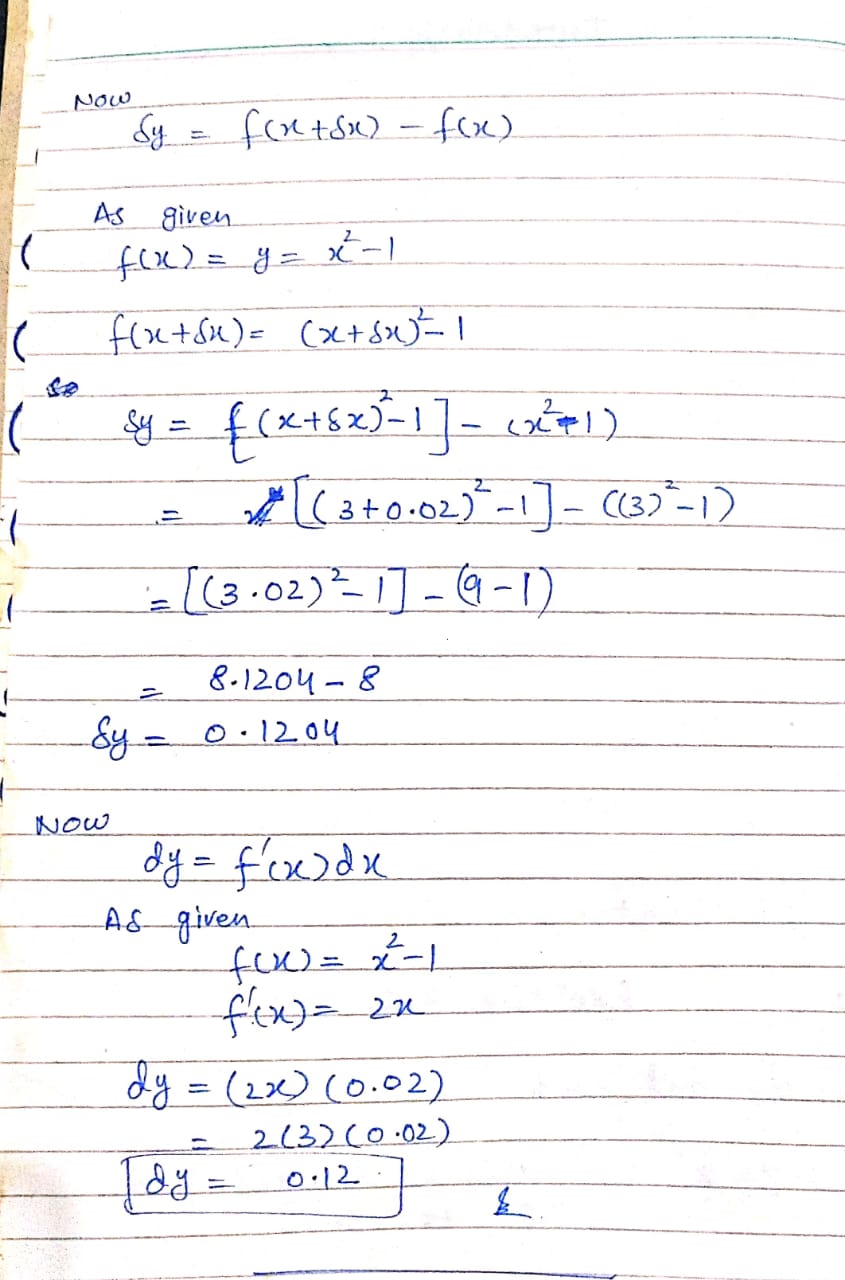 Now
δy = f(x+δx) - f(x)
As given
f(x) = y = x²-1
f(x+δx) = (x+δx)²-1
so
δy = [(x+δx)²-1] - (x²-1)
= [(3+0.02)²-1] - ((3)²-1)
= [(3.02)²-1] - (9-1)
= 8.1204 - 8
δy = 0.1204
Now
dy = f'(x)dx
As given
f(x) = x²-1
f'(x) = 2x
dy = (2x) (0.02)
= 2(3)(0.02)
dy = 0.12